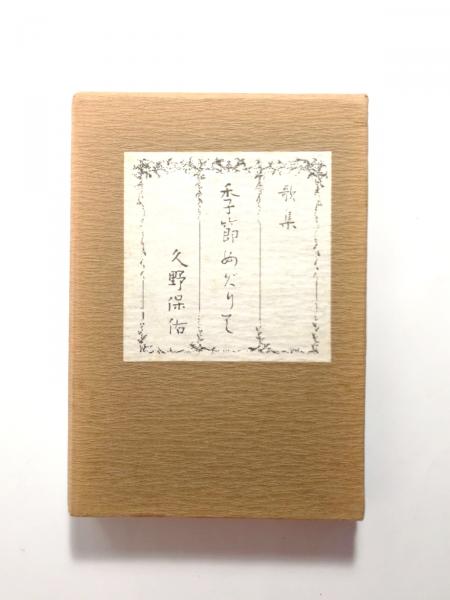 歌集
季節めぐりて
久野保佑